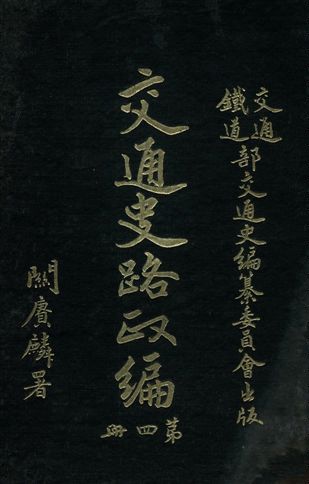 交通鐵道部交通史編纂委員會出版
交通史路政編
第四册
關賡麟署